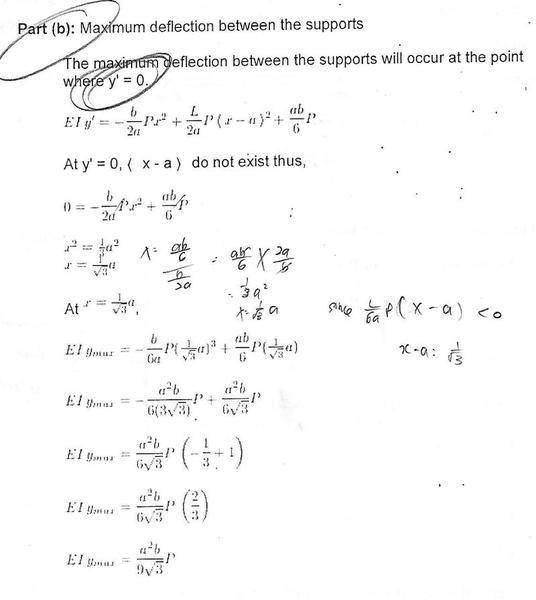 Part (b): Maximum deflection between the supports
The maximum deflection between the supports will occur at the point
where y' = 0.
EI y' = -b/2a Px² + L/2a P⟨x - a⟩² + ab/6 P
At y' = 0, ⟨ x - a ⟩ do not exist thus,
0 = -b/2a Px² + ab/6 P
x² = 1/3 a²
x = 1/√3 a
x = ab/6 / b/2a = ab/6 × 2a/b
= 1/3 a²
x = 1/√3 a
since L/6a P(x - a) < 0
x-a: 1/√3
At x = 1/√3 a,
EI ymax = -b/6a P(1/√3 a)³ + ab/6 P(1/√3 a)
EI ymax = -a²b/6(3√3) P + a²b/6√3 P
EI ymax = a²b/6√3 P (-1/3 + 1)
EI ymax = a²b/6√3 P (2/3)
EI ymax = a²b/9√3 P